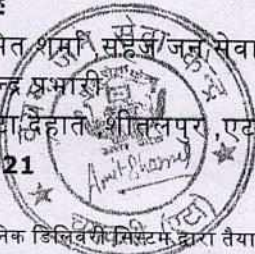 मित शर्मा ,सहज जन सेवा
न्द्र प्रभारी
देहात ,शीतलपुर ,एट
21
जन सेवा केन्द्र
Amit Sharma
(एटा)
निक डिलिवरी सिस्टम द्वारा तैया